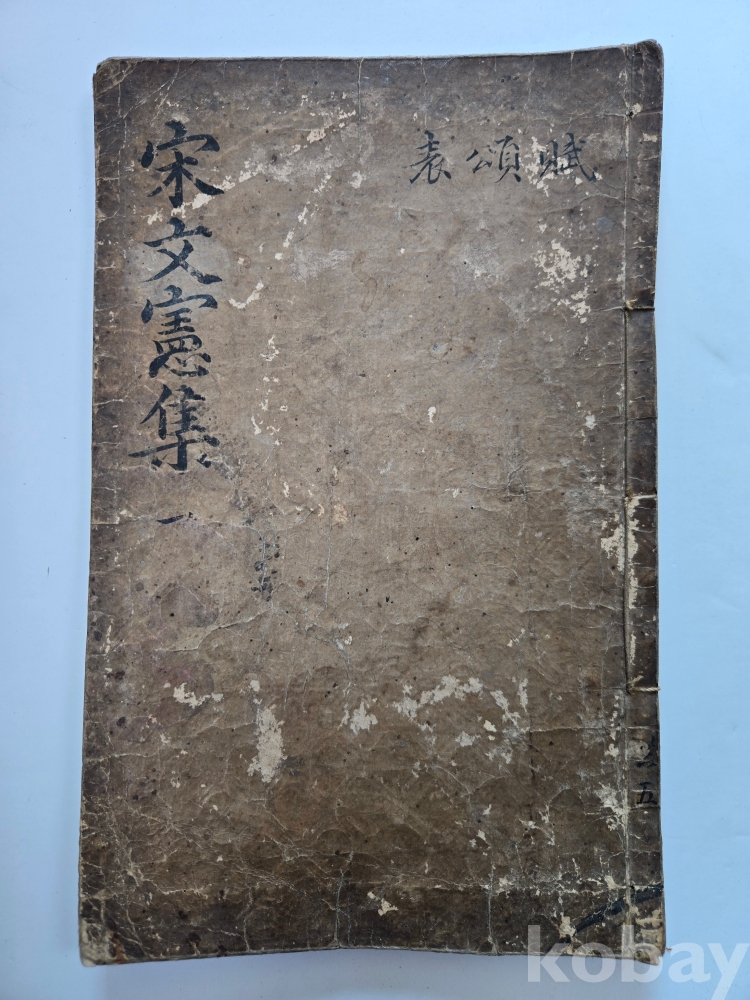 宋文憲集 一
賦頌表
五
kobay